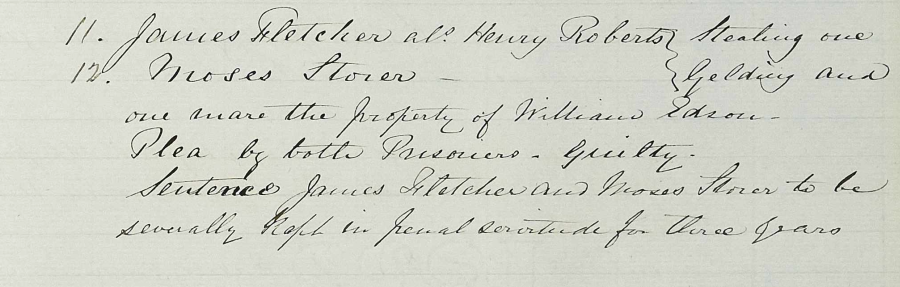 11. James Fletcher als. Henry Roberts } Stealing one
12. Moses Storer - } Gelding and
one mare the property of William Edson -
Plea by both Prisoners - Guilty.
Sentence James Fletcher and Moses Storer to be
severally Kept in penal servitude for three years